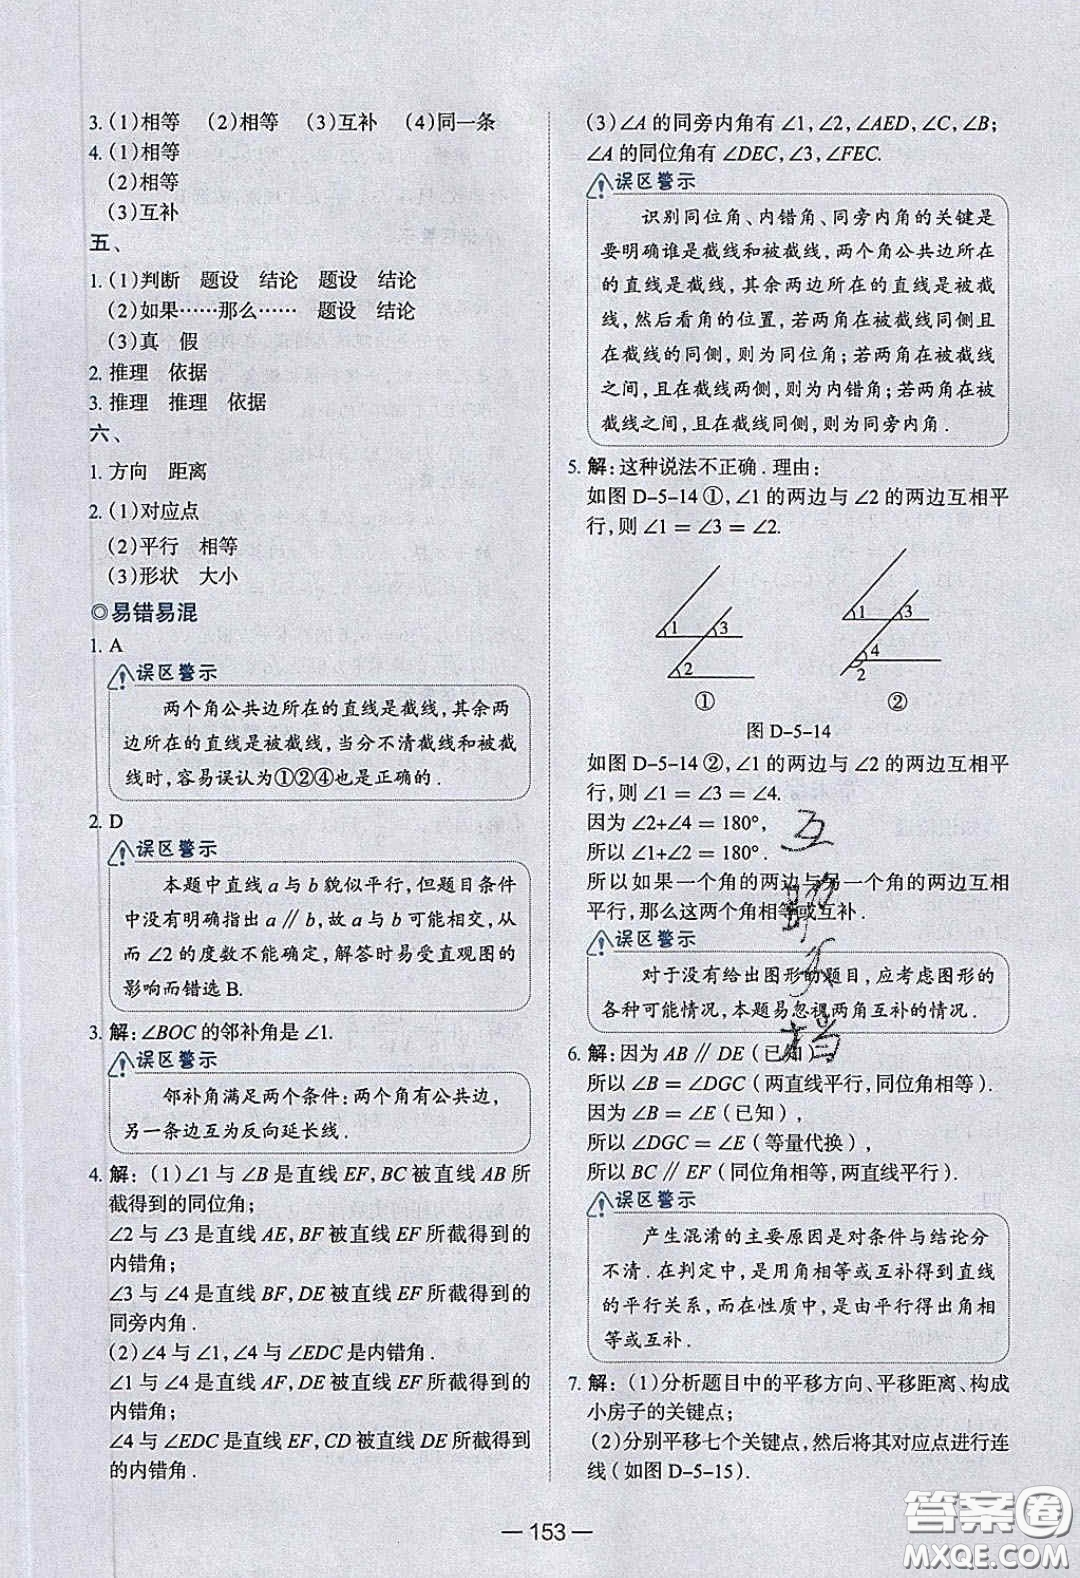 3. (1)相等　(2)相等　(3)互补　(4)同一条
4. (1)相等
(2)相等
(3)互补
五、
1. (1)判断　题设　结论　题设　结论
(2)如果……那么……　题设　结论
(3)真　假
2. 推理　依据
3. 推理　推理　依据
六、
1. 方向　距离
2. (1)对应点
(2)平行　相等
(3)形状　大小
◎易错易混
1. A
误区警示
两个角公共边所在的直线是截线,其余两
边所在的直线是被截线,当分不清截线和被截
线时,容易误认为①②④也是正确的.
2. D
误区警示
本题中直线 a 与 b 貌似平行,但题目条件
中没有明确指出 a∥b,故 a 与 b 可能相交,从
而 ∠2 的度数不能确定,解答时易受直观图的
影响而错选 B.
3. 解:∠BOC 的邻补角是 ∠1.
误区警示
邻补角满足两个条件:两个角有公共边,
另一条边互为反向延长线.
4. 解:(1)∠1 与 ∠B 是直线 EF,BC 被直线 AB 所
截得到的同位角;
∠2 与 ∠3 是直线 AE,BF 被直线 EF 所截得到的
内错角;
∠3 与 ∠4 是直线 BF,DE 被直线 EF 所截得到的
同旁内角;
(2)∠4 与 ∠1,∠4 与 ∠EDC 是内错角.
∠1 与 ∠4 是直线 AF,DE 被直线 EF 所截得到的
内错角;
∠4 与 ∠EDC 是直线 EF,CD 被直线 DE 所截得到
的内错角.
(3)∠A 的同旁内角有 ∠1,∠2,∠AED,∠C,∠B;
∠A 的同位角有 ∠DEC,∠3,∠FEC.
误区警示
识别同位角、内错角、同旁内角的关键是
要明确谁是截线和被截线,两个角公共边所在
的直线是截线,其余两边所在的直线是被截
线,然后看角的位置,若两角在被截线同侧且
在截线的同侧,则为同位角;若两角在被截线
之间,且在截线两侧,则为内错角;若两角在被
截线之间,且在截线同侧,则为同旁内角.
5. 解:这种说法不正确.理由:
如图 D-5-14 ①,∠1 的两边与 ∠2 的两边互相平
行,则 ∠1 = ∠3 = ∠2.
1 3
2
1 3
4
2
①　②
图 D-5-14
如图 D-5-14 ②,∠1 的两边与 ∠2 的两边互相平
行,则 ∠1 = ∠3 = ∠4.
因为 ∠2+∠4 = 180°,
所以 ∠1+∠2 = 180°.
所以如果一个角的两边与另一个角的两边互相
平行,那么这两个角相等或互补.
误区警示
对于没有给出图形的题目,应考虑图形的
各种可能情况,本题易忽视两角互补的情况.
6. 解:因为 AB∥DE(已知),
所以 ∠B = ∠DGC(两直线平行,同位角相等).
因为 ∠B = ∠E(已知),
所以 ∠DGC = ∠E(等量代换),
所以 BC∥EF(同位角相等,两直线平行).
误区警示
产生混淆的主要原因是对条件与结论分
不清.在判定中,是用角相等或互补得到直线
的平行关系,而在性质中,是由平行得出角相
等或互补.
7. 解:(1)分析题目中的平移方向、平移距离、构成
小房子的关键点;
(2)分别平移七个关键点,然后将其对应点进行连
线(如图 D-5-15).
— 153 —
答案圈
MXQE.COM